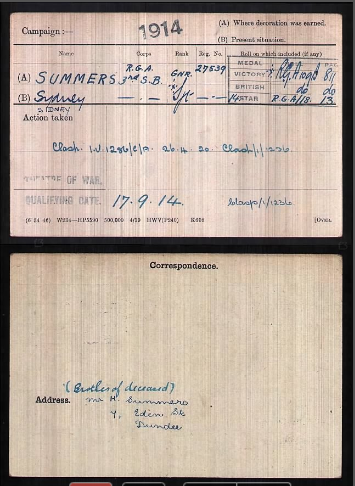 (A) Where decoration was earned.
Campaign :— 1914
(B) Present situation.
Name Corps Rank Reg. No. Roll on which included (if any)
MEDAL
(A) SUMMERS R.G.A. GNR. 27539 VICTORY
3rd S.B. BRITISH do do
(B) Sydney — " — Sjt — " — 14 STAR R.G.A/1B. 13.
SIDNEY
Action taken
Clasp. 26.4.20. Clasp/1/1236.
THEATRE OF WAR.
QUALIFYING DATE. 17.9.14. Clasp/1/1236
(6 34 46) W234—HP5590 500,000 4/19 HWV(P240) K608 [OVER.
Correspondence.
(Brother of deceased)
Address. Mr H. Summers
7, Eden St
Dundee